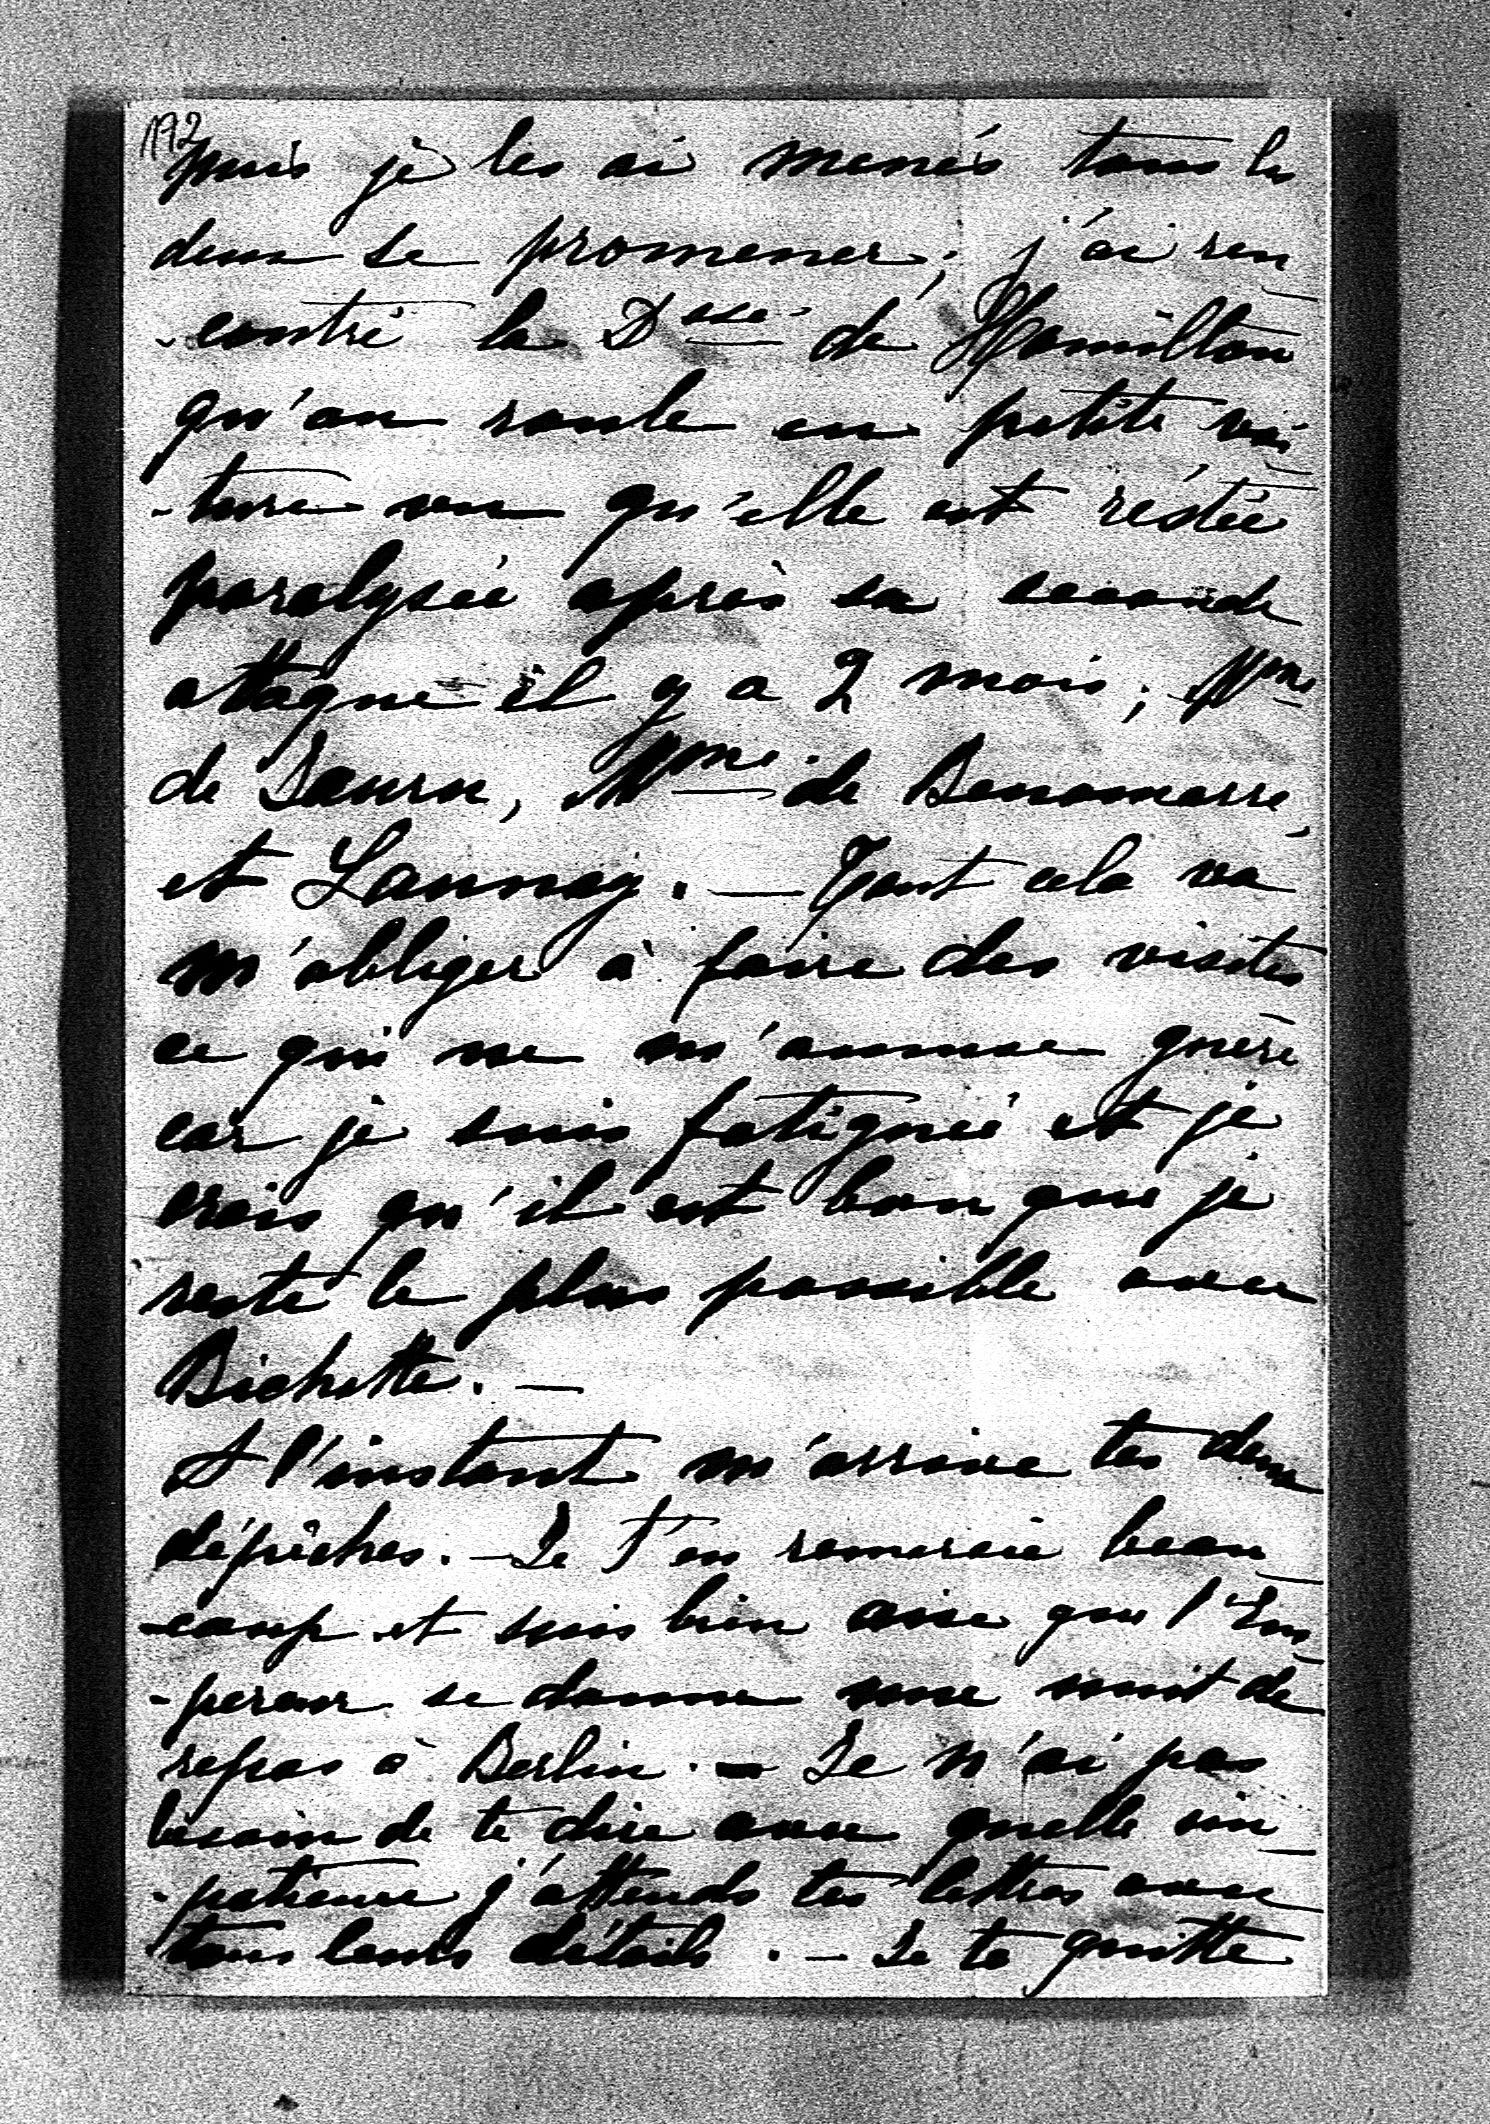 192
puis je les ai menés tous les
deux se promener; j'ai ren
-contré la Dsse de Hamilton
qu'on roule en petite voi
-ture vu qu'elle est réstée
paralysée après sa seconde
attaque il y a 2 mois; Mme
de Saurn, Mme de Benomarre,
et Launay. — Tout cela va
m'obliger à faire des visites
ce qui ne m'amuse guère
car je suis fatiguée et je
crois qu'il est bon que je
reste le plus possible avec
Bichette. —
A l'instant m'arrive tes deux
dépêches. — Je t'en remercie beau
-coup et suis bien aise que l'Em
-pereur se donne une nuit de
repos à Berlin. — Je n'ai pas
besoin de te dire avec quelle im
-patience j'attends tes lettres avec
tous leurs détails. — Je te quitte